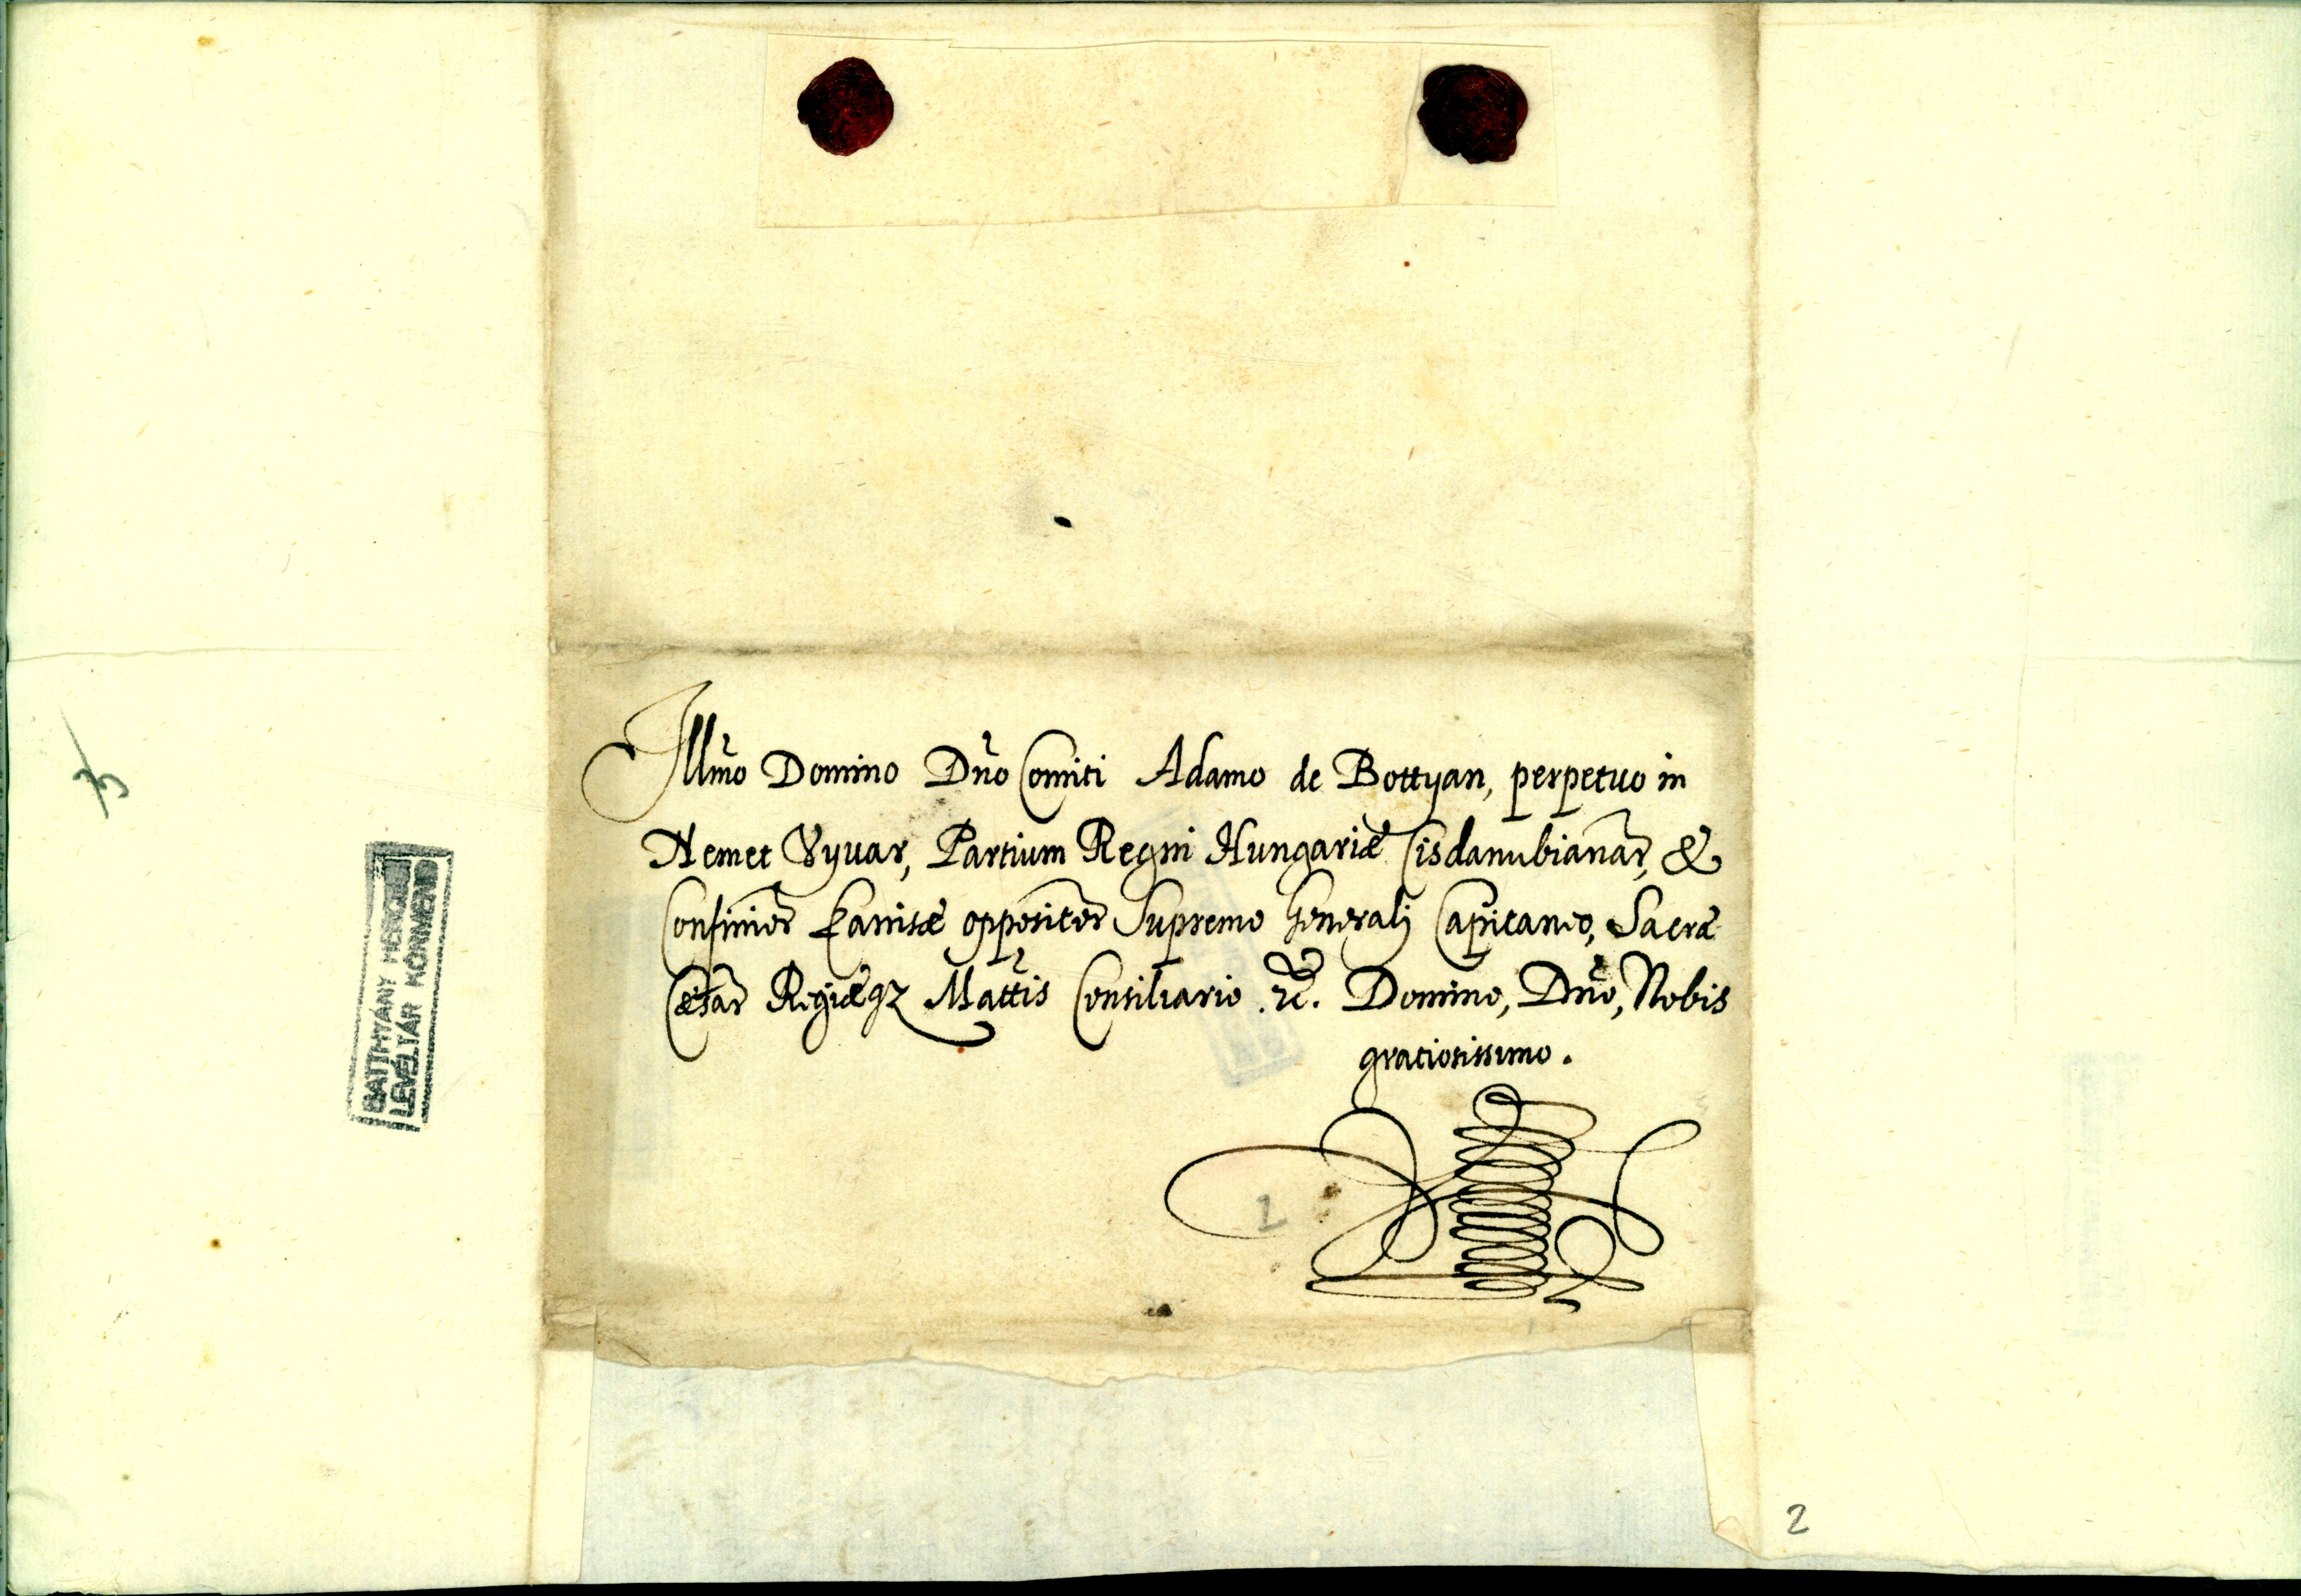 Illmo Domino Dno Comiti Adamo de Bottyan, perpetuo in
Nemet Vyvar, Partium Regni Hungariæ Cisdanubianar, &
Confinior Kanisæ oppositor Supremo Generalj Capitaneo, Sacræ
Cæsar Regiæqz Mattis Consiliario .etc. Domino, Dno, Nobis
gratiosissimo.
BATTHYÁNY HERCEGI
LEVÉLTÁR KÖRMEND
3
2